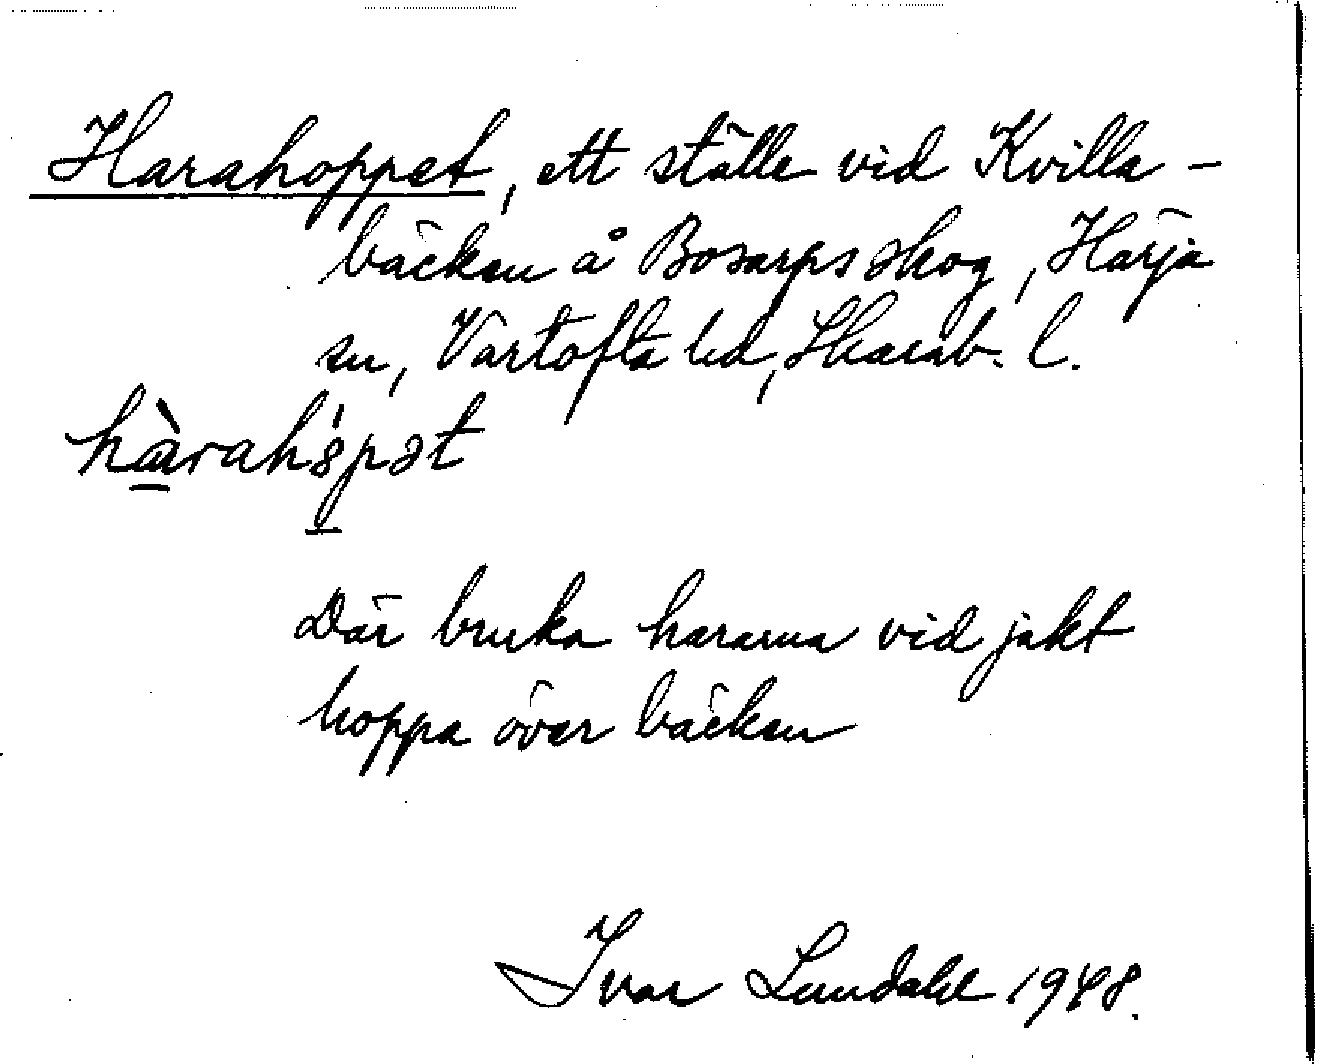 Harahoppet, ett ställe vid Kvilla-
bäcken å Bosarps skog, Härja
sn, Vartofta hd, Skarab. l.
hàrahópət
Där bruka hararna vid jakt
hoppa över bäcken
Ivar Lundahl 1948.